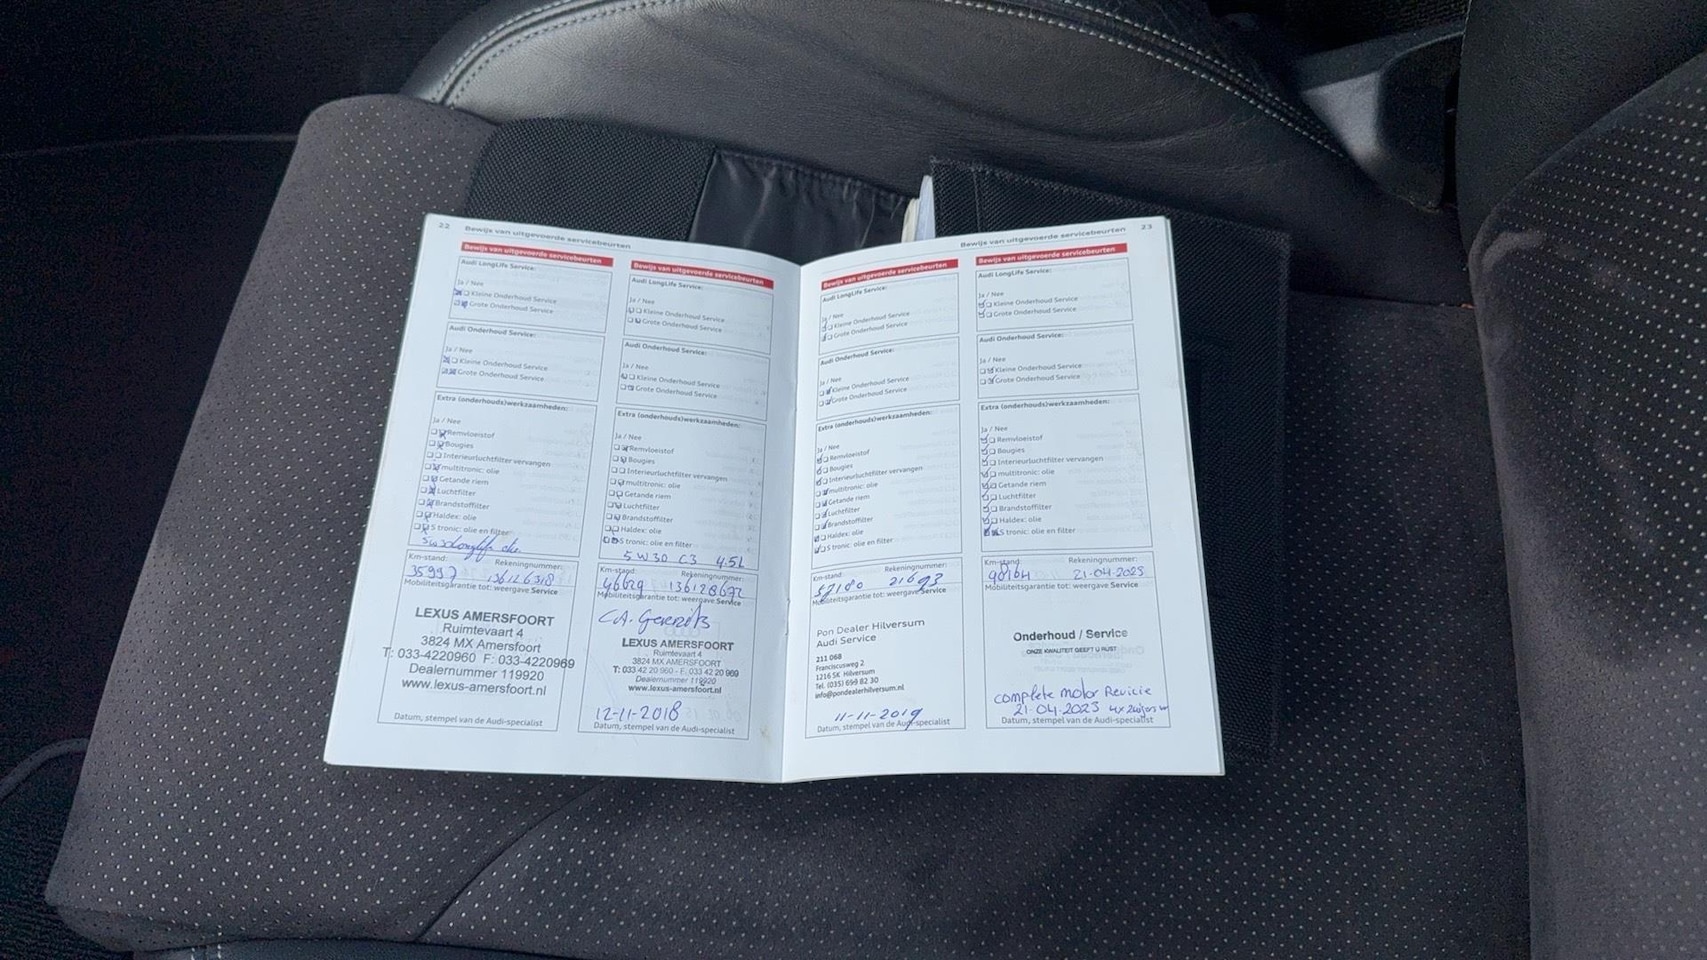 22 Bewijs van uitgevoerde servicebeurten
Bewijs van uitgevoerde servicebeurten
Audi LongLife Service:
Ja / Nee
Kleine Onderhoud Service
Grote Onderhoud Service
Audi Onderhoud Service:
Ja / Nee
Kleine Onderhoud Service
Grote Onderhoud Service
Extra (onderhouds)werkzaamheden:
Ja / Nee
Remvloeistof
Bougies
Interieurluchtfilter vervangen
multitronic: olie
Getande riem
Luchtfilter
Brandstoffilter
Haldex: olie
S tronic: olie en filter
5w30 longlife olie
Km-stand: Rekeningnummer:
35997 136126318
Mobiliteitsgarantie tot: weergave Service
LEXUS AMERSFOORT
Ruimtevaart 4
3824 MX Amersfoort
T: 033-4220960 F: 033-4220969
Dealernummer 119920
www.lexus-amersfoort.nl
Datum, stempel van de Audi-specialist
Bewijs van uitgevoerde servicebeurten
Audi LongLife Service:
Ja / Nee
Kleine Onderhoud Service
Grote Onderhoud Service
Audi Onderhoud Service:
Ja / Nee
Kleine Onderhoud Service
Grote Onderhoud Service
Extra (onderhouds)werkzaamheden:
Ja / Nee
Remvloeistof
Bougies
Interieurluchtfilter vervangen
multitronic: olie
Getande riem
Luchtfilter
Brandstoffilter
Haldex: olie
S tronic: olie en filter
5W30 C3 4.5L
Km-stand: Rekeningnummer:
46629 136128672
Mobiliteitsgarantie tot: weergave Service
LEXUS AMERSFOORT
Ruimtevaart 4
3824 MX AMERSFOORT
T: 033 42 20 960 - F: 033 42 20 969
Dealernummer 119920
www.lexus-amersfoort.nl
12-11-2018
Datum, stempel van de Audi-specialist
Bewijs van uitgevoerde servicebeurten 23
Bewijs van uitgevoerde servicebeurten
Audi LongLife Service:
Ja / Nee
Kleine Onderhoud Service
Grote Onderhoud Service
Audi Onderhoud Service:
Ja / Nee
Kleine Onderhoud Service
Grote Onderhoud Service
Extra (onderhouds)werkzaamheden:
Ja / Nee
Remvloeistof
Bougies
Interieurluchtfilter vervangen
multitronic: olie
Getande riem
Luchtfilter
Brandstoffilter
Haldex: olie
S tronic: olie en filter
Km-stand: Rekeningnummer:
57180 21693
Mobiliteitsgarantie tot: weergave Service
Pon Dealer Hilversum
Audi Service
211 068
Franciscusweg 2
1216 SK Hilversum
Tel. (035) 699 82 30
info@pondealerhilversum.nl
11-11-2019
Datum, stempel van de Audi-specialist
Bewijs van uitgevoerde servicebeurten
Audi LongLife Service:
Ja / Nee
Kleine Onderhoud Service
Grote Onderhoud Service
Audi Onderhoud Service:
Ja / Nee
Kleine Onderhoud Service
Grote Onderhoud Service
Extra (onderhouds)werkzaamheden:
Ja / Nee
Remvloeistof
Bougies
Interieurluchtfilter vervangen
multitronic: olie
Getande riem
Luchtfilter
Brandstoffilter
Haldex: olie
S tronic: olie en filter
Km-stand: Rekeningnummer:
90164 21-04-2023
Mobiliteitsgarantie tot: weergave Service
Onderhoud / Service
ONZE KWALITEIT GEEFT U RUST
complete motor Revicie
21-04-2023 4x zuigers
Datum, stempel van de Audi-specialist